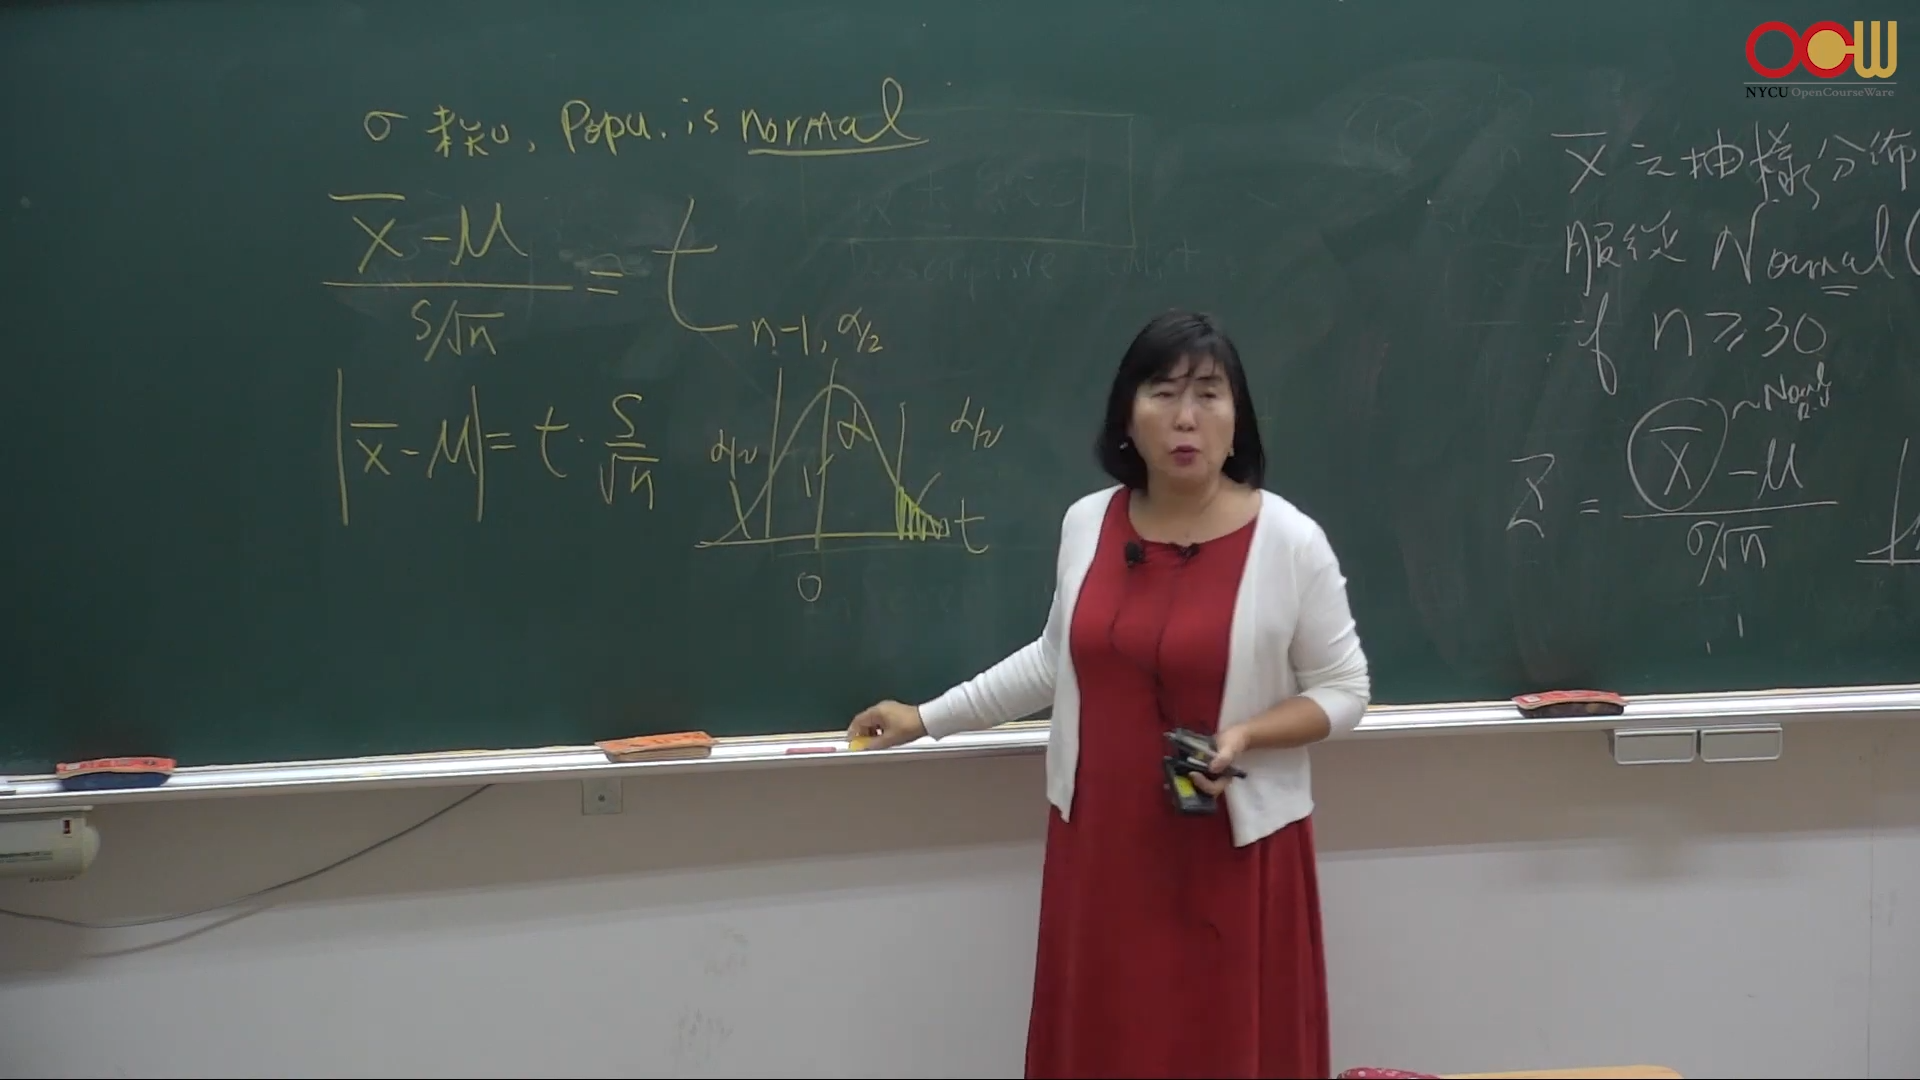 OCW
NYCU OpenCourseWare
σ 未知, Popu. is normal
x̄ - μ / s/√n = t n-1, α/2
|x̄ - μ| = t · s/√n
α/2 α α/2
t
0
x̄ 之抽樣分佈
服從 Normal (
if n ≥ 30
~ Normal
Z = x̄ - μ / σ/√n